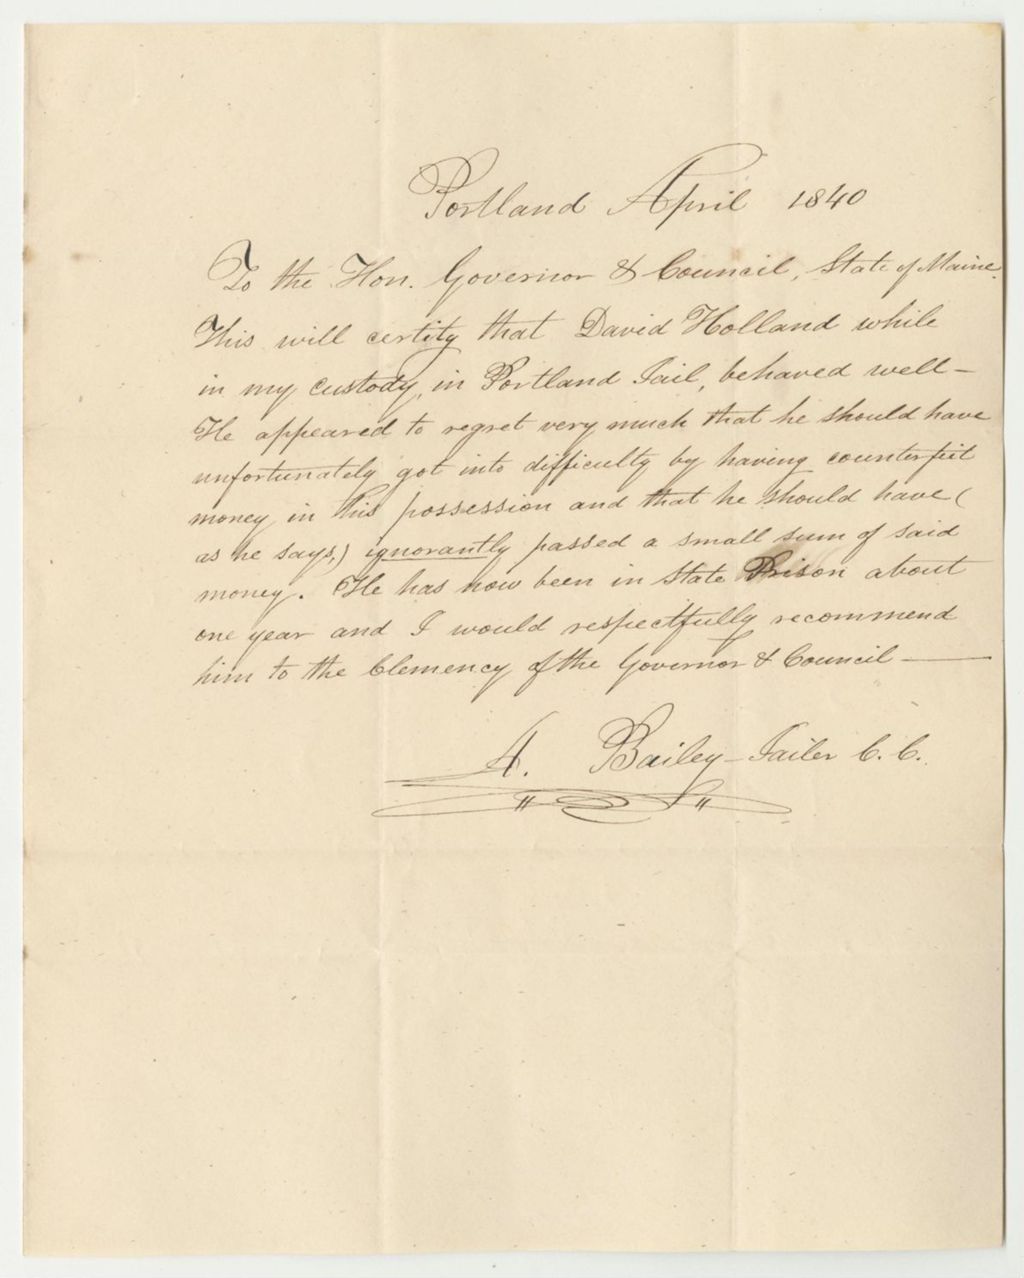 Portland April 1840
To the Hon. Governor & Council, State of Maine.
This will certify that David Holland while
in my custody, in Portland Jail, behaved well –
He appeared to regret very much that he should have
unfortunately got into difficulty by having counterfeit
money in his possession and that he should have (
as he says,) ignorantly passed a small sum of said
money. He has now been in State Prison about
one year and I would respectfully recommend
him to the Clemency of the Governor & Council —
A. Bailey – Jailer C. C.